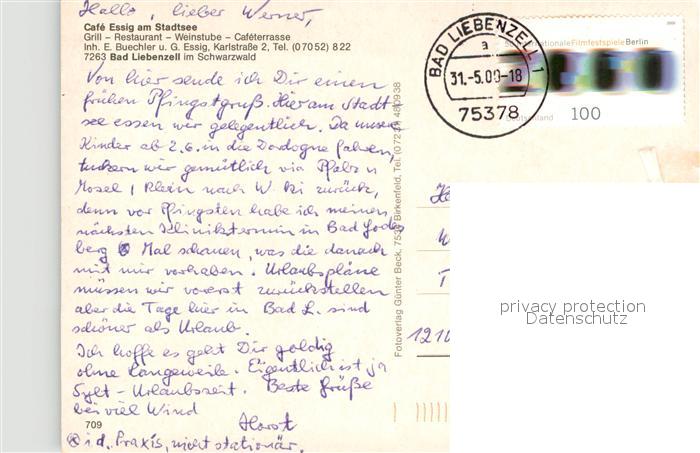 Hallo, lieber Werner,
Café Essig am Stadtsee
Grill – Restaurant – Weinstube – Caféterrasse
Inh. E. Buechler u. G. Essig, Karlstraße 2, Tel. (07052) 822
7263 Bad Liebenzell im Schwarzwald
Von hier sende ich Dir einen
frühen Pfingstgruß. Hier am Stadt
see essen wir gelegentlich. Da unsere
Kinder ab 2.6. in die Dordogne fahren,
tuckern wir gemütlich via Pfalz u
Mosel, Rhein nach W. zurück,
denn vor Pfingsten habe ich meinen
nächsten Kliniktermin in Bad Godes
berg ⊗ Mal schauen, was die danach
mit mir vorhaben. Urlaubspläne
müssen wir vorerst zurückstellen
aber die Tage hier in Bad L. sind
schöner als Urlaub.
Ich hoffe es geht Dir goldig
ohne Langeweile. Eigentlich ist ja
Sylt-Urlaubszeit. Beste Grüße
bei viel Wind
Horst
709
⊗ i.d. Praxis, nicht stationär.
Fotoverlag Günter Beck, 7534 Birkenfeld, Tel. (07231) 480938
BAD LIEBENZELL 1
a
31.-5.00-18
75378
Internationale Filmfestspiele Berlin
Deutschland 100
1210
privacy protection
Datenschutz